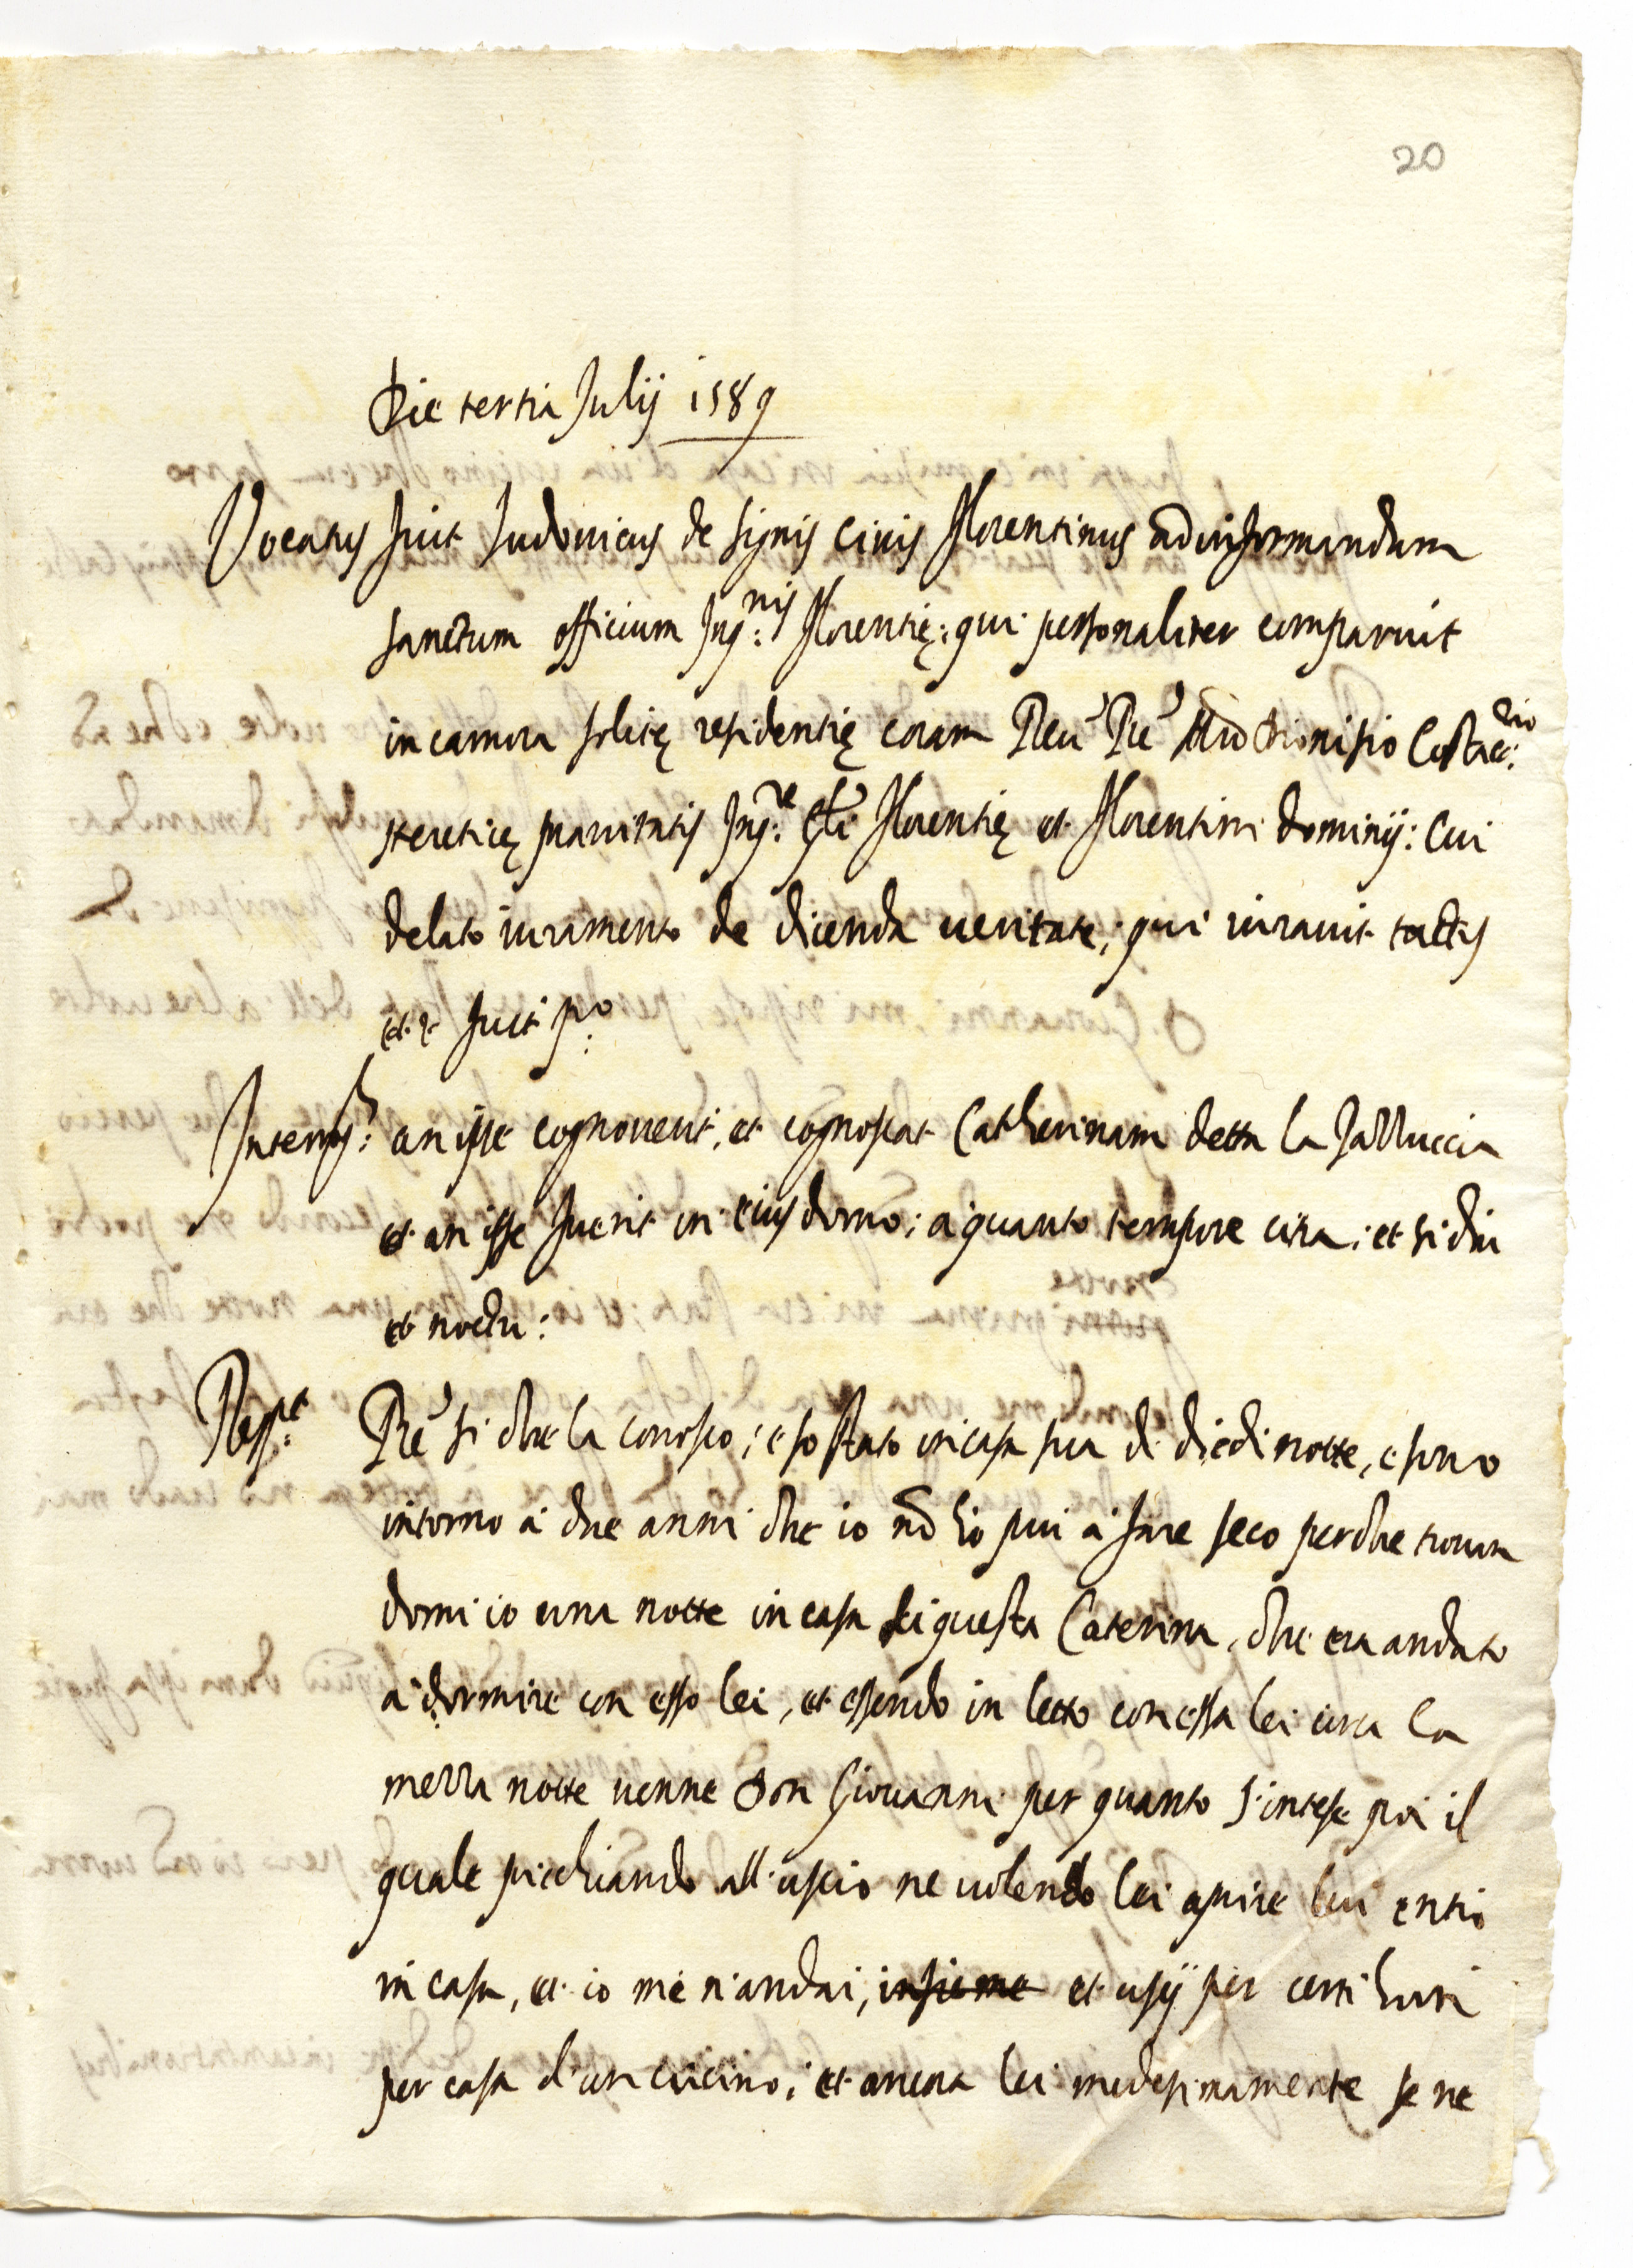 20
Die tertia Julij 1589
Vocatus fuit Ludovicus de Signis civis florentinus ad informandum
sanctum officium Inq:nis florentię: qui personaliter comparuit
in camera solitę residentię coram Reu Pre Mro Dionisio Costac:rio
hereticę pravitatis Inq:re gli florentię et florentini dominij: Cui
delato iuramento de dicenda ueritate; qui iurauit tactis
et c fuit p:o
Interrog: an ipse cognouerit, et cognoscat Catherinam detta la Jalluccia
et an ipse fuerit in eius domo; a quanto tempore citra; et si diu
et noctu:
Resp:t Pre si che la conosco; e so stato in casa sua di di e di notte, e sono
intorno à due anni che io nō hò piu à fare seco perche
dormi io una notte in casa di questa Caterina, che era andato
a dormire con esso lei, et essendo in letto con essa lei circa la
mezza notte uenne Don Giouanni per quanto s'intese poi il
quale picchiando all'uscio ne uolendo lei aprire lui entrò
in casa, et io me n'andai, insieme et uscij per certi
per casa d'un uicino; et ancora lei medesimamente se ne